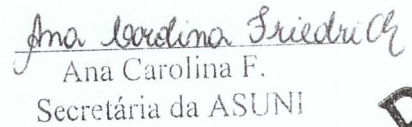 Ana Carolina Friedrich
Ana Carolina F.
Secretária da ASUNI